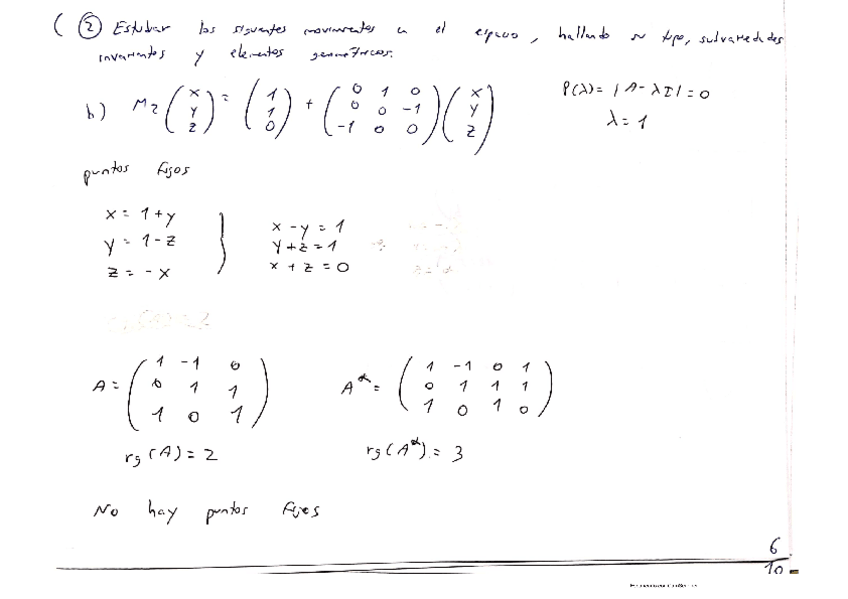 ( ② Estudiar los siguientes movimientos en el espacio, hallando su tipo, subvariedades
invariantes y elementos geométricos.
b) M2 (x y z) = (1 1 0) + (0 1 0 / 0 0 -1 / -1 0 0) (x y z)
P(λ) = |A - λI| = 0
λ = 1
puntos fijos
x = 1 + y
y = 1 - z
z = - x
x - y = 1
y + z = 1
x + z = 0
A = (1 -1 0 / 0 1 1 / 1 0 1)
A* = (1 -1 0 1 / 0 1 1 1 / 1 0 1 0)
rg(A) = 2
rg(A*) = 3
No hay puntos fijos
6
10